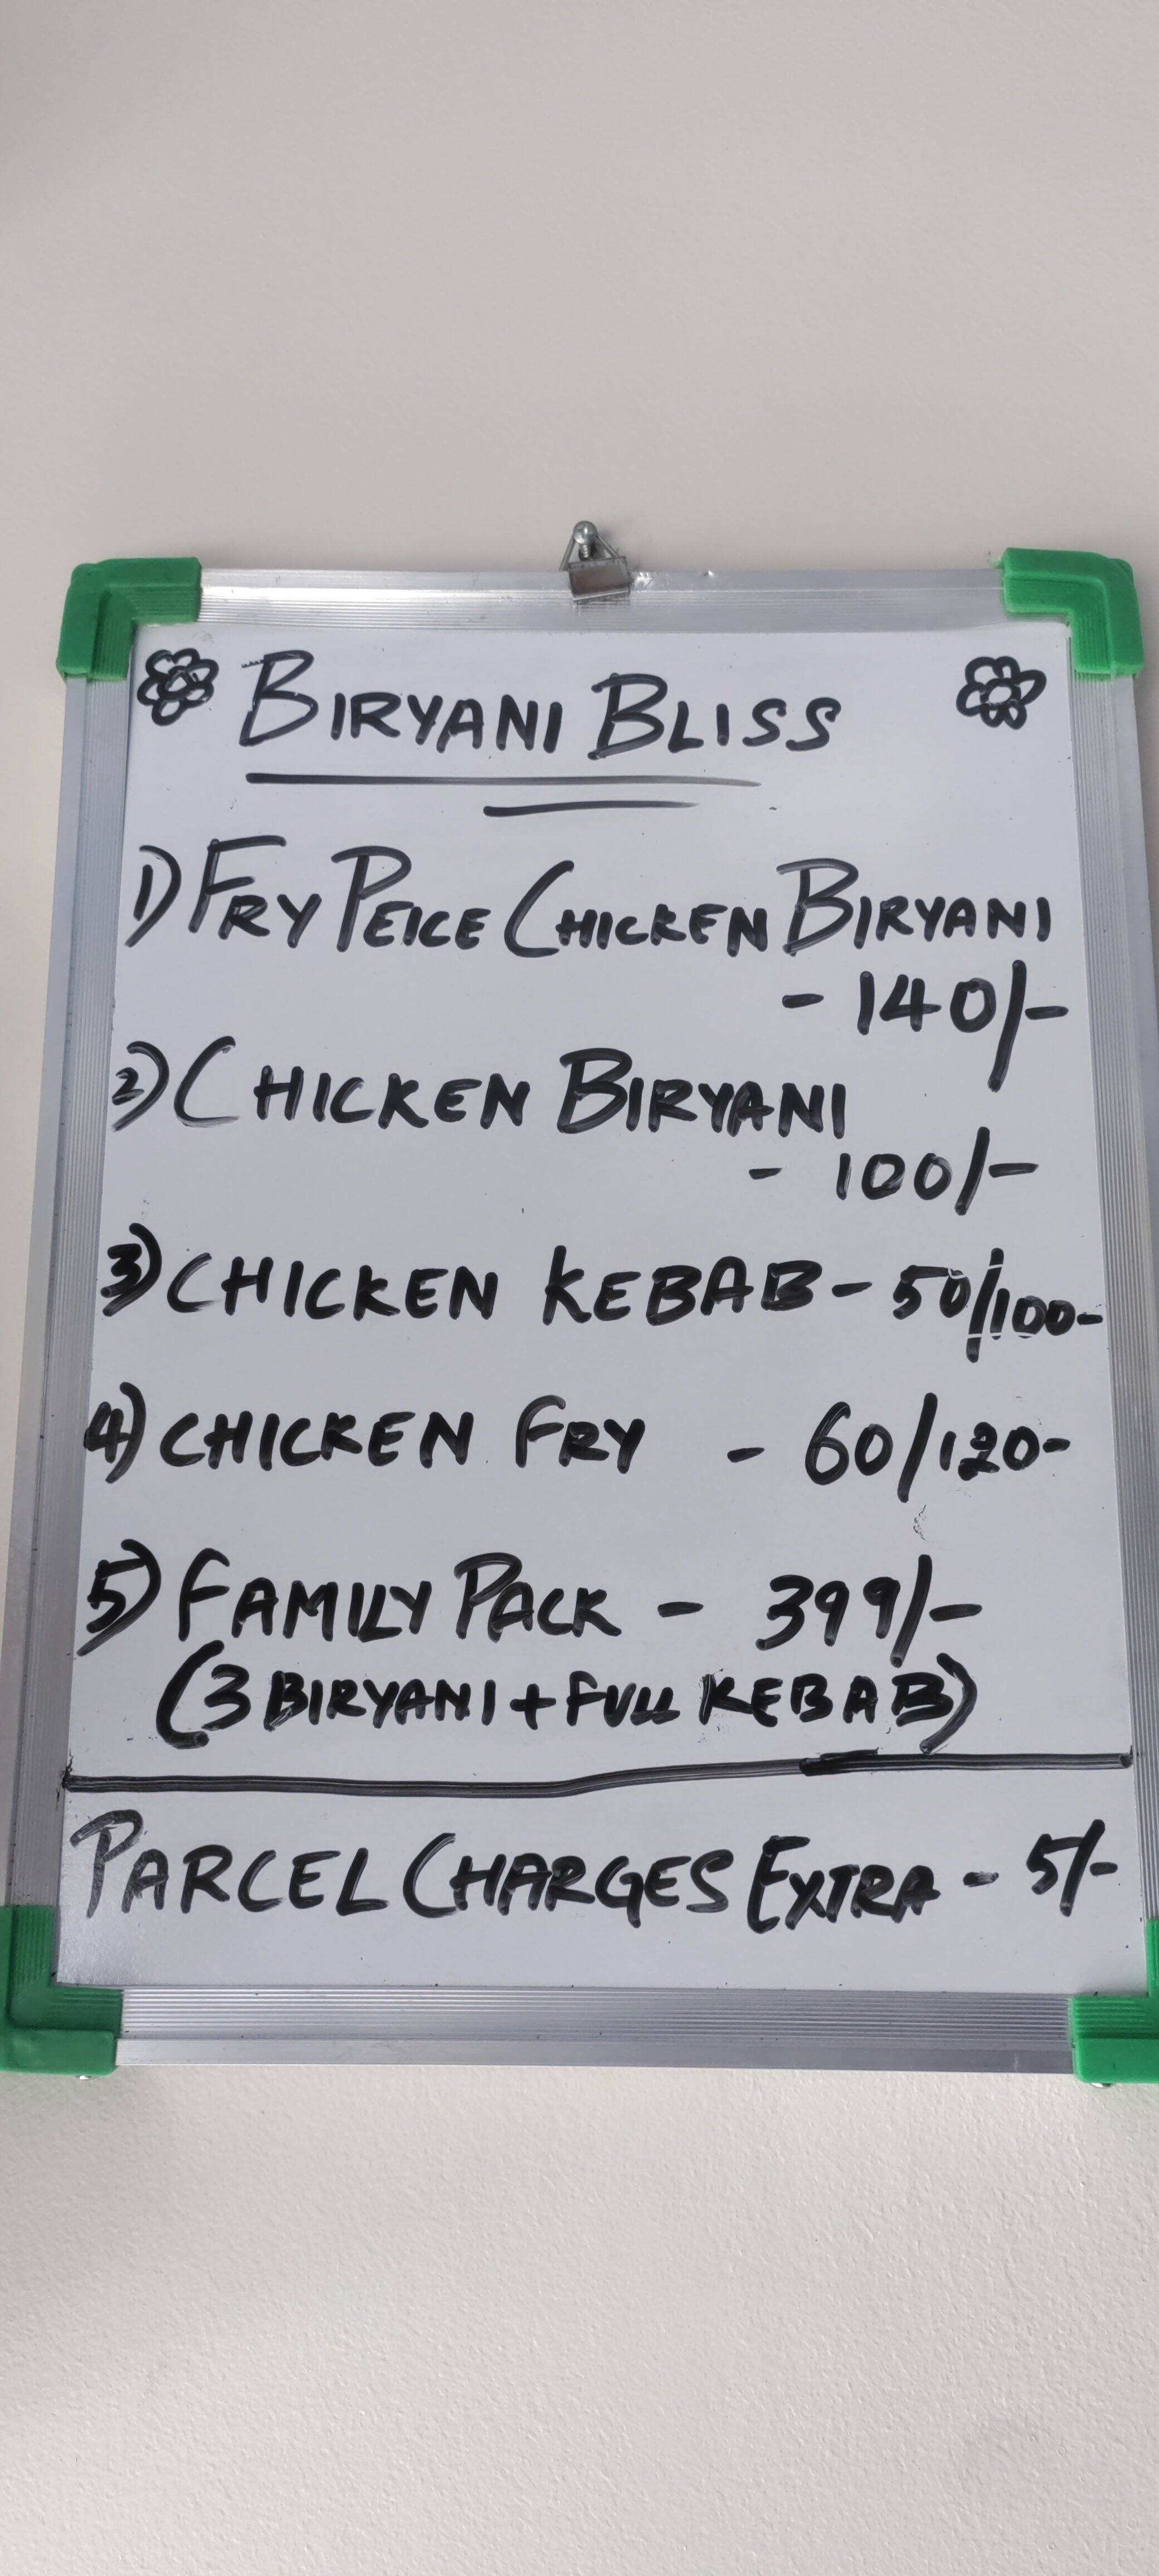 BIRYANI BLISS
1) FRY PEICE CHICKEN BIRYANI
- 140/-
2) CHICKEN BIRYANI
- 100/-
3) CHICKEN KEBAB - 50/100-
4) CHICKEN FRY - 60/120-
5) FAMILY PACK - 399/-
(3 BIRYANI + FULL KEBAB)
PARCEL CHARGES EXTRA - 5/-